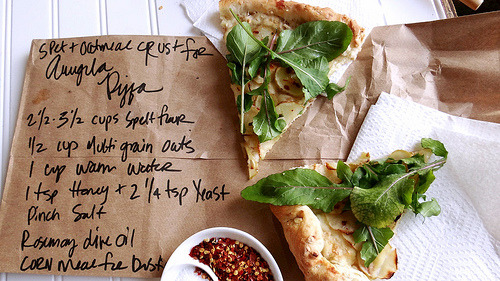 Spelt + Oatmeal crust for
Arugula
Pizza
2 1/2 - 3 1/2 cups Spelt flour
1/2 cup Multi grain oats
1 cup warm water
1 tsp Honey + 2 1/4 tsp Yeast
Pinch Salt
Rosemary olive oil
Corn Meal for Dust